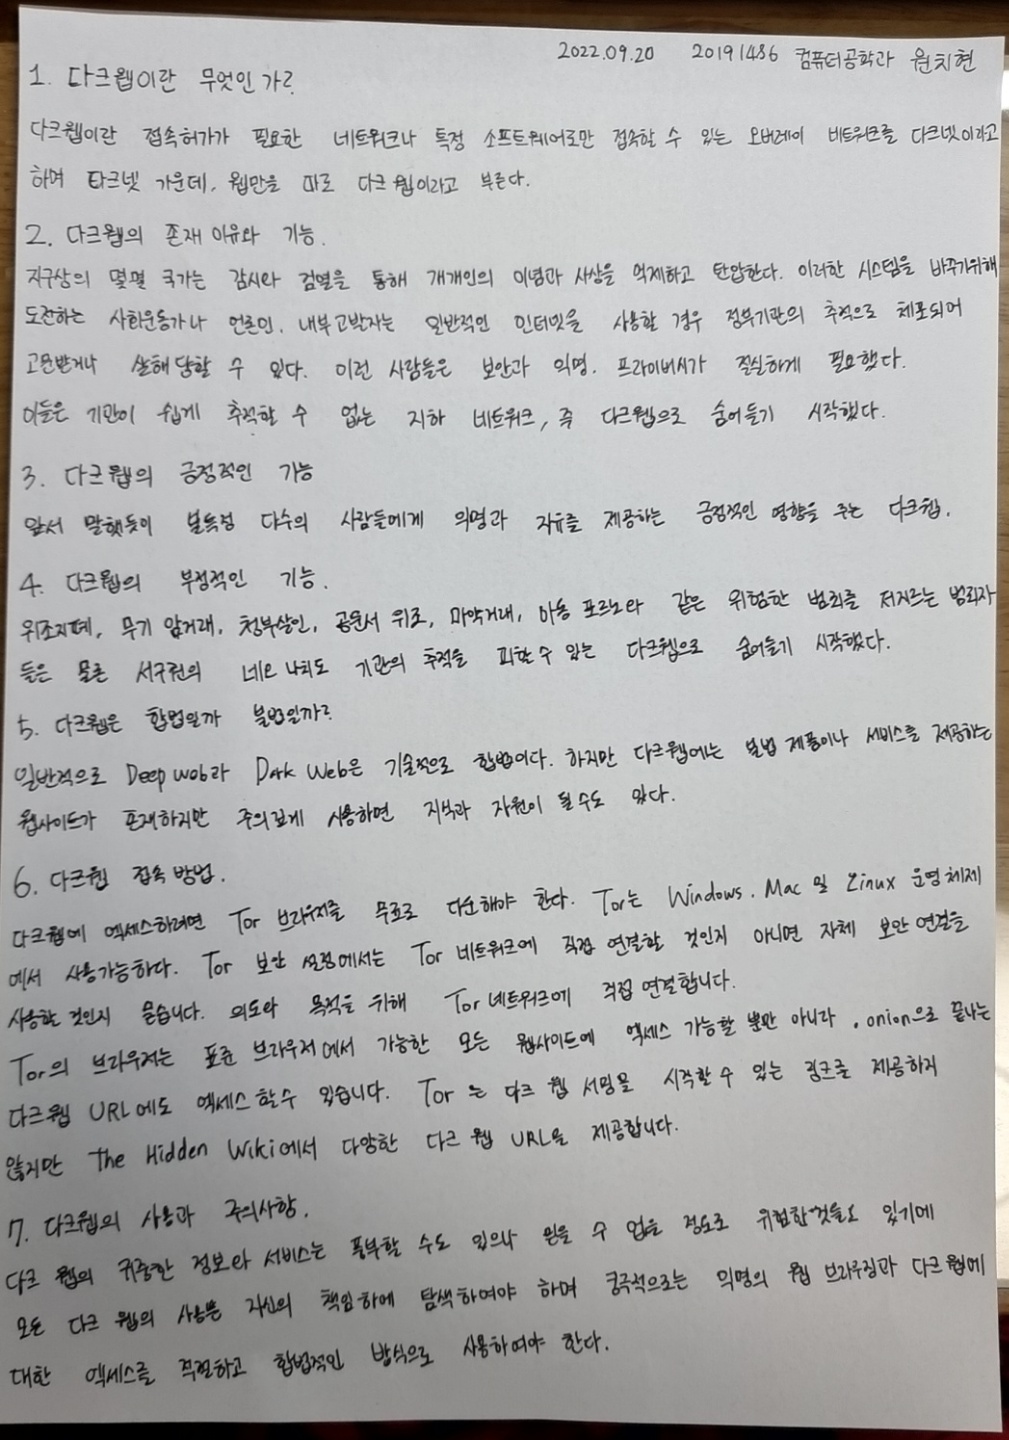 2022.09.20 20191486 컴퓨터공학과 원치현
1. 다크웹이란 무엇인가?
다크웹이란 접속허가가 필요한 네트워크나 특정 소프트웨어로만 접속할 수 있는 오버레이 네트워크를 다크넷이라고
하며 다크넷 가운데, 웹만을 따로 다크웹이라고 부른다.
2. 다크웹의 존재 이유와 기능.
지구상의 몇몇 국가는 감시와 검열을 통해 개개인의 이념과 사상을 억제하고 탄압한다. 이러한 시스템을 바꾸기위해
도전하는 사회운동가나 언론인, 내부고발자는 일반적인 인터넷을 사용할 경우 정부기관의 추적으로 체포되어
고문받거나 살해당할 수 있다. 이런 사람들은 보안과 익명, 프라이버시가 절실하게 필요했다.
이들은 기관이 쉽게 추적할 수 없는 지하 네트워크, 즉 다크웹으로 숨어들기 시작했다.
3. 다크웹의 긍정적인 기능
앞서 말했듯이 불특정 다수의 사람들에게 익명과 자유를 제공하는 긍정적인 영향을 주는 다크웹.
4. 다크웹의 부정적인 기능.
위조지폐, 무기 암거래, 청부살인, 공문서 위조, 마약거래, 아동 포르노와 같은 위험한 범죄를 저지르는 범죄자
들은 물론 서구권의 네오 나치도 기관의 추적을 피할 수 있는 다크웹으로 숨어들기 시작했다.
5. 다크웹은 합법일까 불법일까?
일반적으로 Deep Web과 Dark Web은 기술적으로 합법이다. 하지만 다크웹에는 불법 제품이나 서비스를 제공하는
웹사이트가 존재하지만 주의깊게 사용하면 지식과 자원이 될 수도 있다.
6. 다크웹 접속 방법.
다크웹에 엑세스하려면 Tor 브라우저를 무료로 다운해야 한다. Tor는 Windows, Mac 및 Linux 운영체제
에서 사용가능하다. Tor 보안 설정에서는 Tor 네트워크에 직접 연결할 것인지 아니면 자체 보안 연결을
사용할 것인지 묻습니다. 의도와 목적을 위해 Tor 네트워크에 직접 연결합니다.
Tor의 브라우저는 표준 브라우저에서 가능한 모든 웹사이트에 엑세스 가능할 뿐만 아니라 .onion으로 끝나는
다크웹 URL에도 엑세스 할수 있습니다. Tor는 다크 웹 서핑을 시작할 수 있는 링크를 제공하지
않지만 The Hidden Wiki에서 다양한 다크 웹 URL을 제공합니다.
7. 다크웹의 사용과 주의사항.
다크 웹의 귀중한 정보와 서비스는 풍부할 수도 있으나 믿을 수 없을 정도로 위험한것들도 있기에
모든 다크 웹의 사용은 자신의 책임하에 탐색하여야 하며 궁극적으로는 익명의 웹 브라우징과 다크웹에
대한 엑세스를 적절하고 합법적인 방식으로 사용하여야 한다.